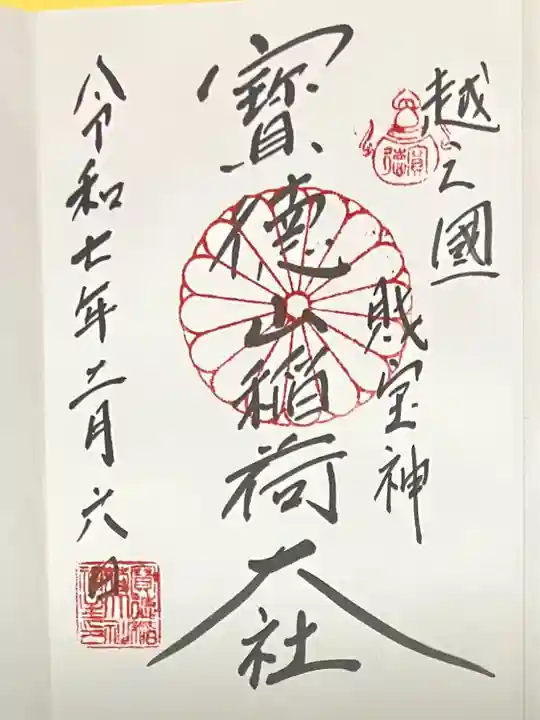 越之國
財宝神
寶徳山稲荷大社
令和七年十二月六日